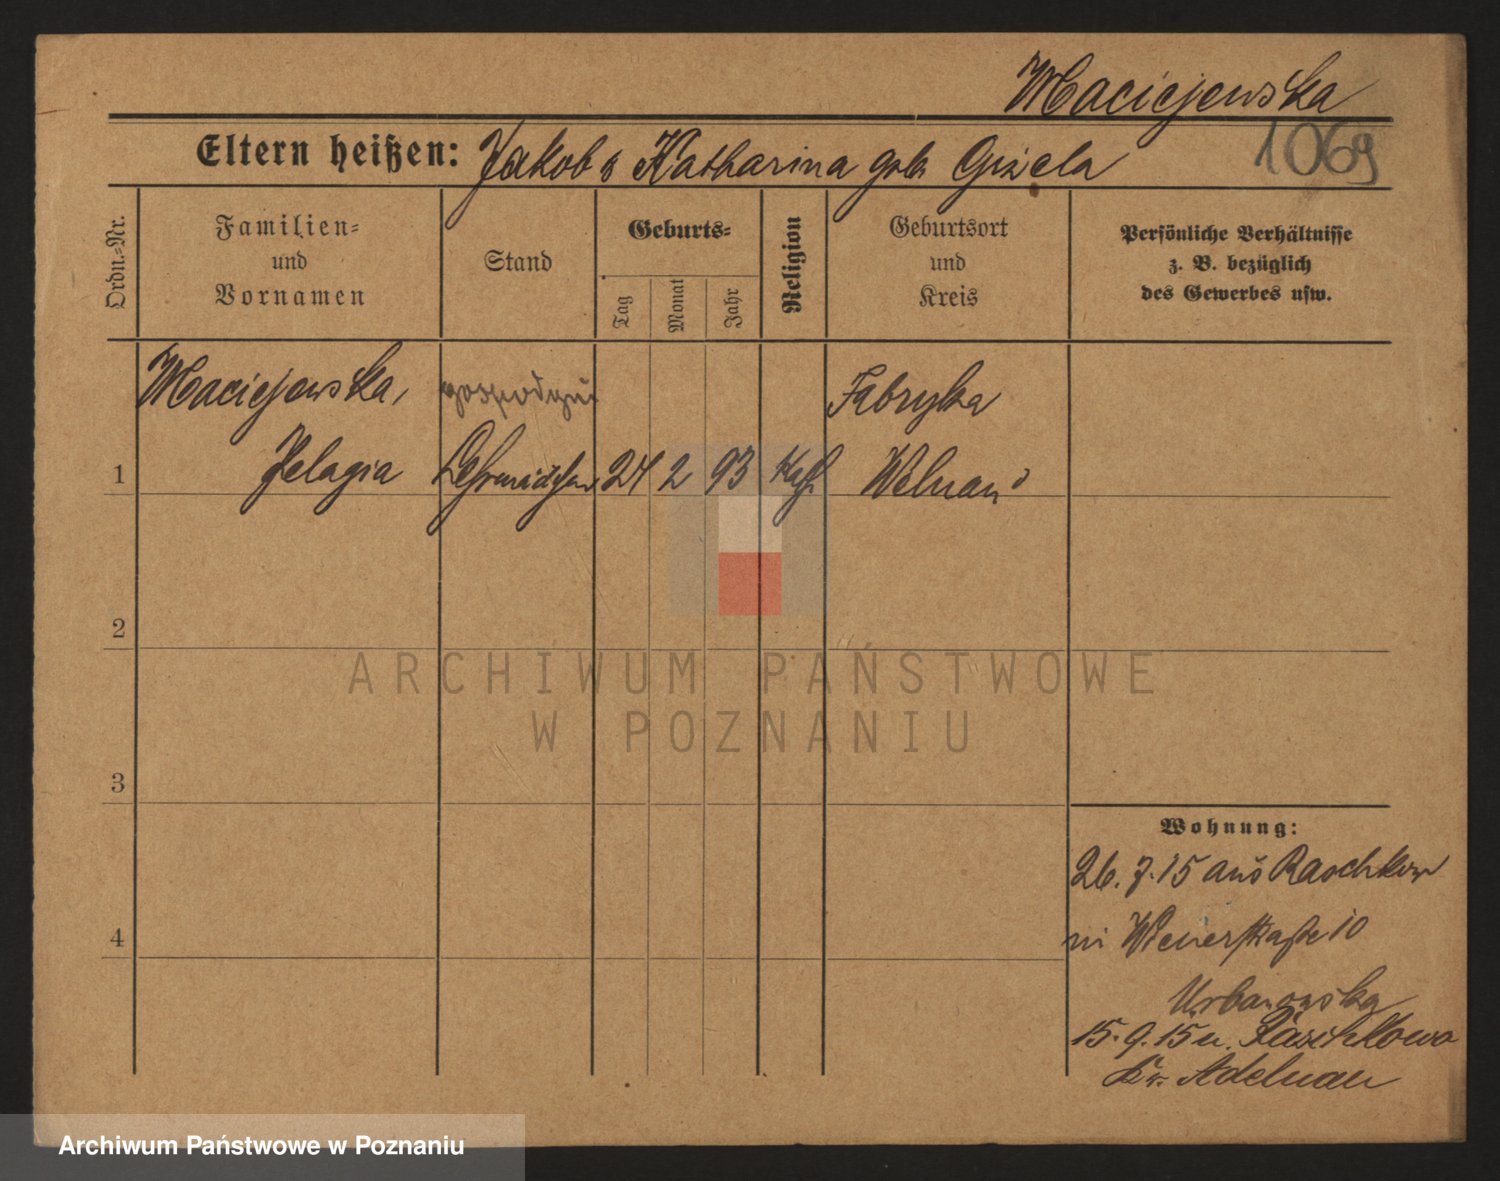 Maciejewska
1069
Eltern heißen: Jakob & Katharina geb. Gizela
Ordn.=Nr.
Familien=
und
Vornamen
Stand
Geburts=
Tag
Monat
Jahr
Religion
Geburtsort
und
Kreis
Persönliche Verhältnisse
z. B. bezüglich
des Gewerbes usw.
Maciejewska, Fabryka
1 Pelagia Lehrmädchen 24 2 93 Kath
2
3
4
Wohnung:
26. 7. 15 aus Raschkow
Wienerstraße 10
Urbanowska
15. 9. 15 n.
Kr. Adelnau
ARCHIWUM PAŃSTWOWE
W POZNANIU
Archiwum Państwowe w Poznaniu